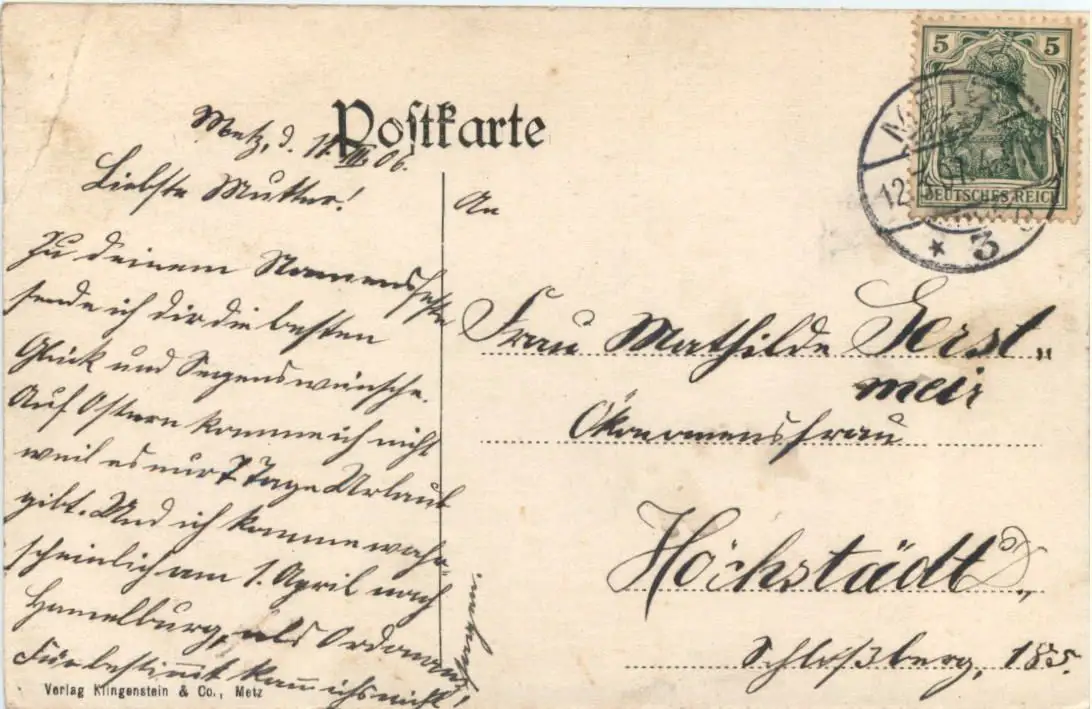 Postkarte
Metz, d. 11. III. 06.
Liebste Mutter!
Zu deinem Namensfeste
sende ich dir die besten
Glück und Segenswünsche.
Auf Ostern komme ich nicht
weil es nur 7 Tage Urlaub
gibt. Und ich komme wahr-
scheinlich am 1. April nach
Hamelburg, als Ordonanz,
Für bestimmt kann ichs nicht
sagen.
Verlag Klingenstein & Co., Metz
5 5
DEUTSCHES REICH
METZ
12
* 3
An
Frau Mathilde Gerst„
meir
Ökonomensfrau
Höchstädt
Schloßberg, 185.